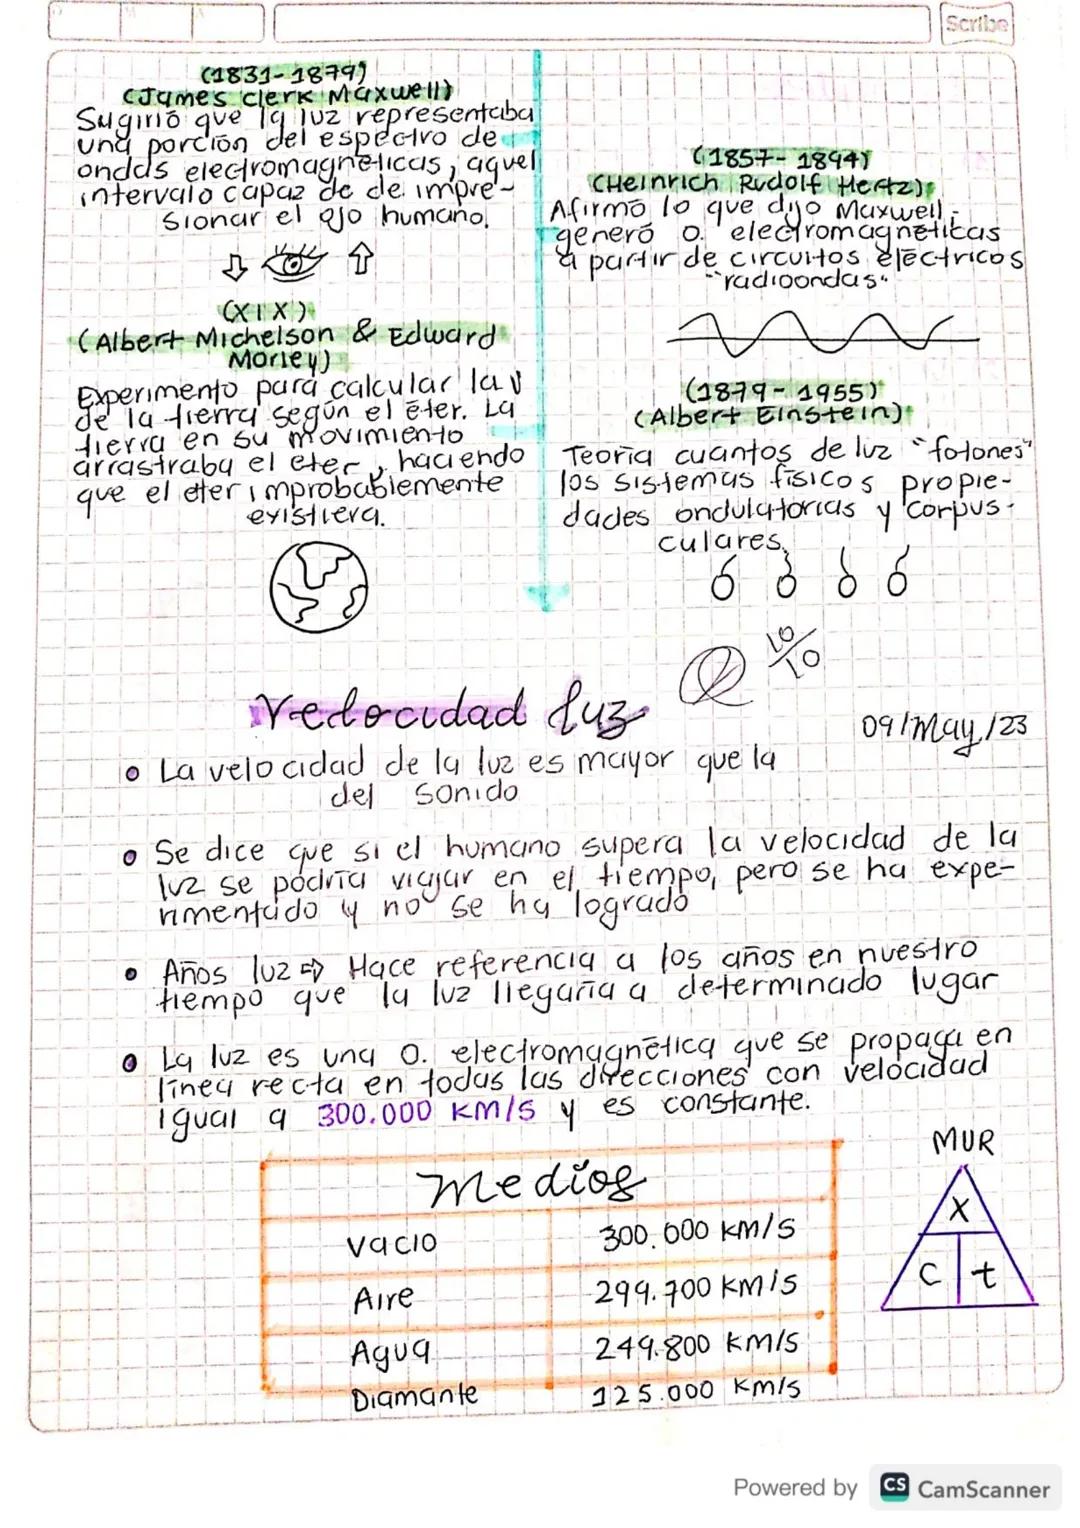 Scribe
(1831-1879)
(James clerk Maxwell)
Sugirió que la luz representaba
una porción del espectro de
ondas electromagnéticas, aquel
intervalo capaz de de impre-
sionar el ojo humano.
(XIX)
(Albert Michelson & Edward
Morley)
Experimento para calcular la v
de la tierra según el éter. La
tierra en su movimiento
arrastraba el eter, haciendo
que el eter improbablemente
existiera.
(1857-1894)
(Heinrich Rudolf Hertz)
Afirmó lo que dijo Maxwell,
generó o. electromagnéticas
a partir de circuitos eléctricos
"radioondas"
(1879-1955)
(Albert Einstein)
Teoría cuantos de luz "fotones"
los sistemas físicos propie-
dades ondulatorias y corpus-
culares.
10/10
Velocidad luz
09/May/23
La velocidad de la luz es mayor que la
del sonido
Se dice que si el humano supera la velocidad de la
luz se podría viajar en el tiempo, pero se ha expe-
rimentado y no se ha logrado
Años luz ⇨ Hace referencia a los años en nuestro
tiempo que la luz llegaría a determinado lugar
La luz es una O. electromagnética que se propaga en
línea recta en todas las direcciones con velocidad
igual a 300.000 KM/S y es constante.
MUR
X
C t
Medios
Vacio 300.000 KM/S
Aire 299.700 KM/S
Agua 249.800 KM/S
Diamante 125.000 KM/S
Powered by CS CamScanner